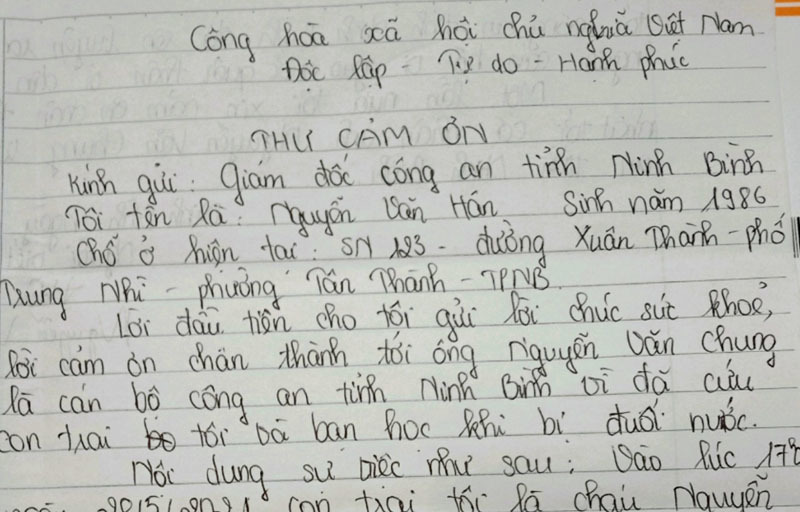 Công hoà xã hội chủ nghĩa Việt Nam
Độc lập - Tự do - Hạnh phúc
THƯ CẢM ƠN
Kính gửi : Giám đốc công an tỉnh Ninh Bình
Tôi tên là : Nguyễn Văn Hán Sinh năm 1986
Chỗ ở hiện tại : SN 123 - đường Xuân Thành - phố
Trung Nhì - phường Tân Thành - TPNB.
Lời đầu tiên cho tôi gửi lời chúc sức khoẻ,
lời cảm ơn chân thành tới ông Nguyễn Văn Chung
là cán bộ công an tỉnh Ninh Bình vì đã cứu
con trai tôi và bạn học khi bị đuối nước.
Nội dung sự việc như sau : Vào lúc 17h
con trai tôi là cháu Nguyễn